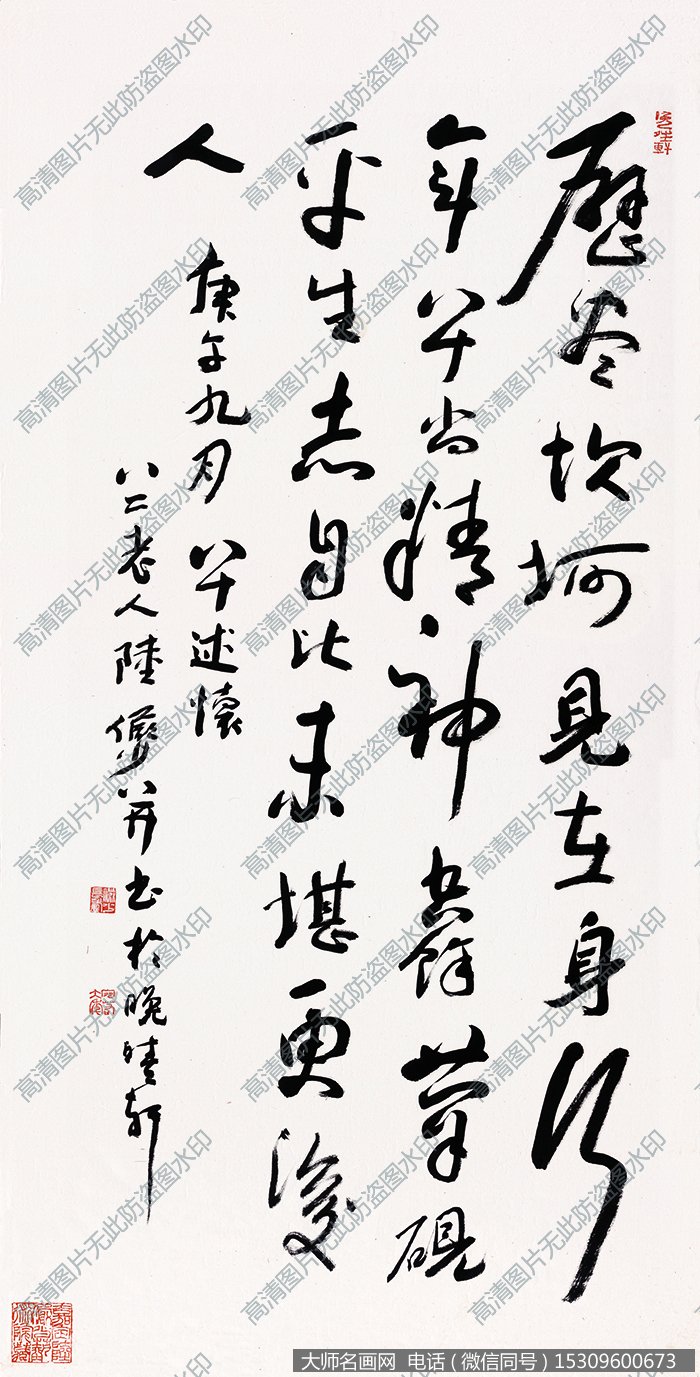 歷盡坎坷見在身行
年八十尚精神餘筆硯
平生志自比未堪更後
人
庚午九月 八十述懷
八二老人陸儼少并書於晚晴軒
高清图片无此防盗图水印
大师名画网 电话（微信同号）15309600673